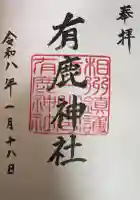 奉拝
有鹿神社
相模鎮護
有鹿神社
令和八年一月十八日